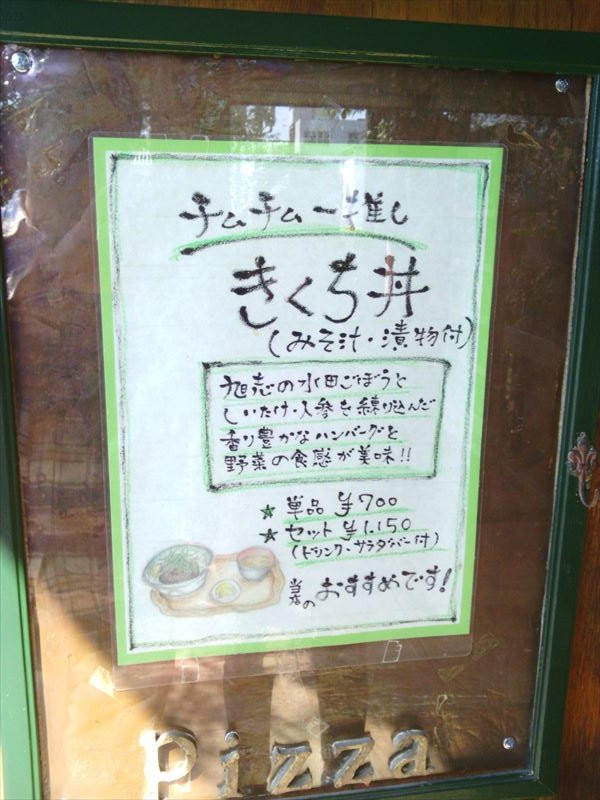 チムチム一推し
きくち丼
(みそ汁・漬物付)
旭志の水田ごぼうと
しいたけ・人参を練り込んだ
香り豊かなハンバーグと
野菜の食感が美味!!
★ 単品 ¥700
★ セット ¥1,150
(ドリンク・サラダバー付)
当店のおすすめです!
pizza